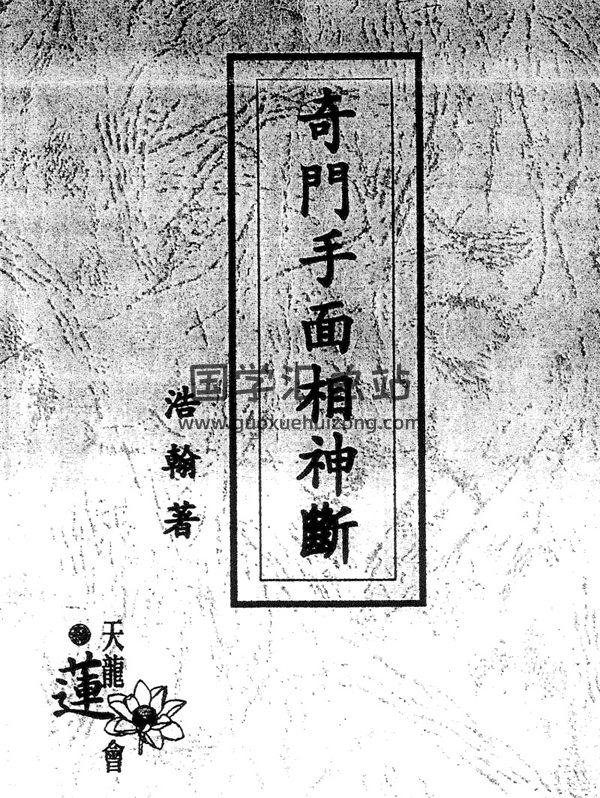 奇門手面相神斷
国学汇总站
www.guoxuehuizong.com
浩翰著
天龍
蓮
會